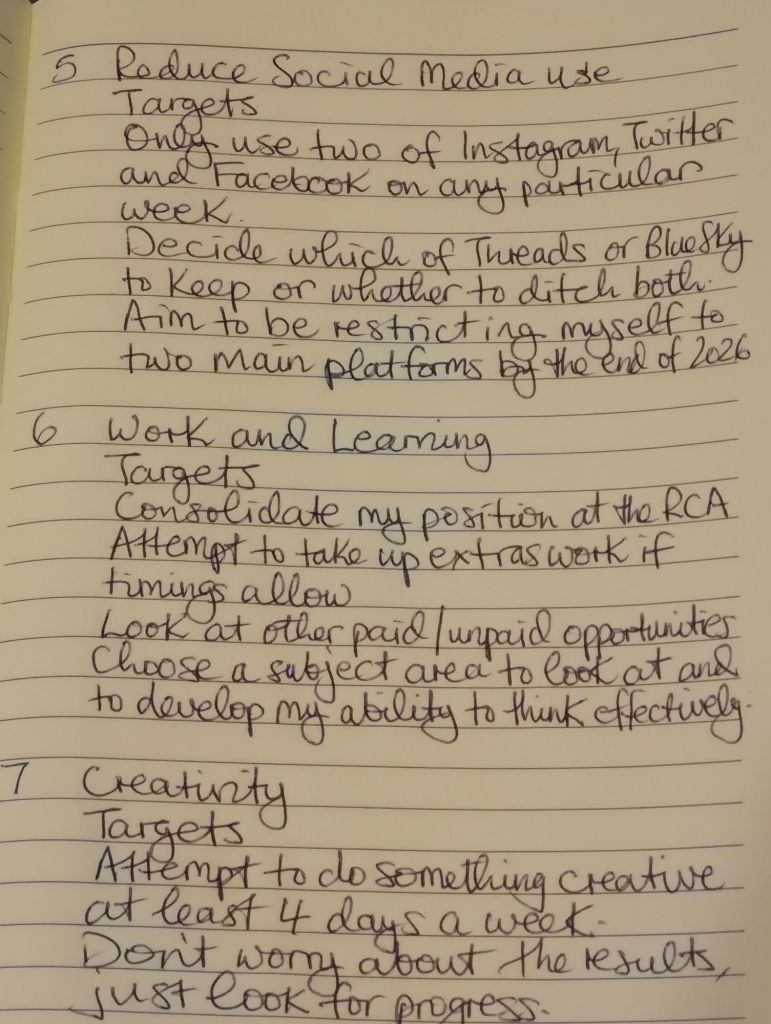 5 Reduce Social Media use
Targets
Only use two of Instagram, Twitter
and Facebook on any particular
week.
Decide which of Threads or BlueSky
to keep or whether to ditch both.
Aim to be restricting myself to
two main platforms by the end of 2026
6 Work and Learning
Targets
Consolidate my position at the RCA
Attempt to take up extras work if
timings allow
Look at other paid/unpaid opportunities
Choose a subject area to look at and
to develop my ability to think effectively.
7 Creativity
Targets
Attempt to do something creative
at least 4 days a week.
Don't worry about the results,
just look for progress.